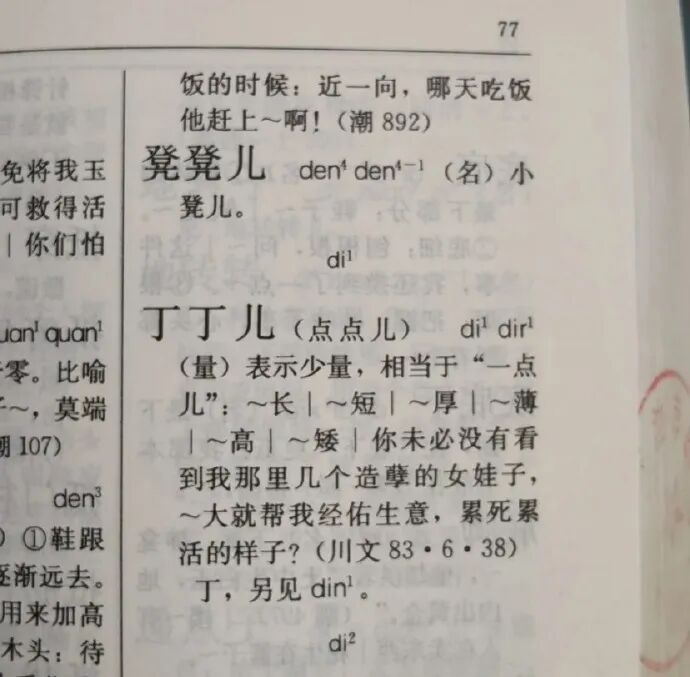 77
免将我玉
可救得活
｜你们怕
uan¹ quan¹
零。比喻
子～，莫端
潮 107)
den³
) ①鞋跟
逐渐远去。
用来加高
木头：待
饭的时候：近一向，哪天吃饭
他赶上～啊！(潮 892)
凳凳儿 den⁴ den⁴⁻¹ (名) 小
凳儿。
di¹
丁丁儿 (点点儿) di¹ dir¹
(量) 表示少量，相当于“一点
儿”：～长｜～短｜～厚｜～薄
｜～高｜～矮｜你未必没有看
到我那里几个造孽的女娃子，
～大就帮我经佑生意，累死累
活的样子？(川文 83·6·38)
丁，另见 din¹。
di²